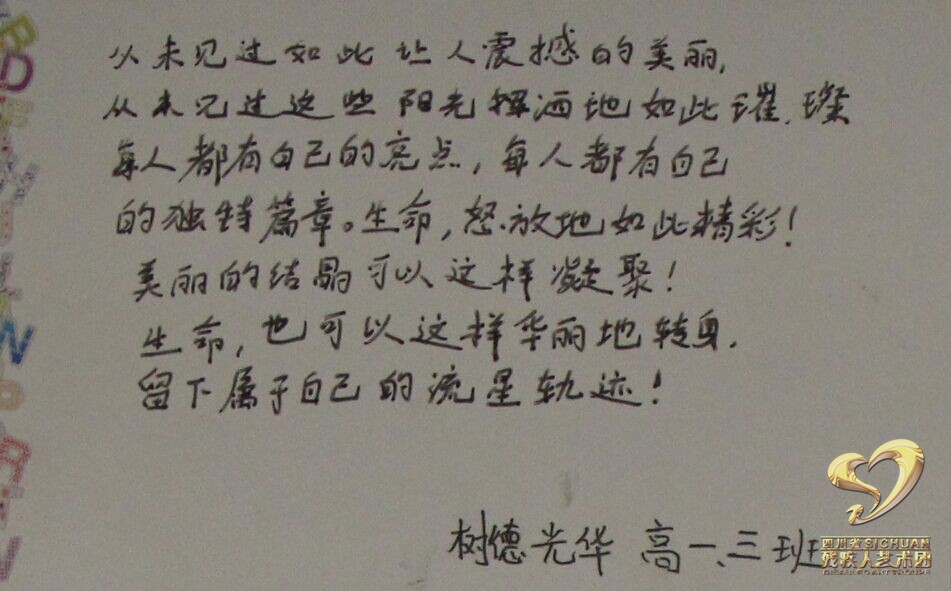 从未见过如此让人震撼的美丽,
从未见过这些阳光挥洒地如此璀璨
每人都有自己的亮点,每人都有自己
的独特篇章。生命,怒放地如此精彩!
美丽的结晶可以这样凝聚!
生命,也可以这样华丽地转身.
留下属于自己的流星轨迹!
树德光华 高一、三班
四川省SICHUAN
残疾人艺术团